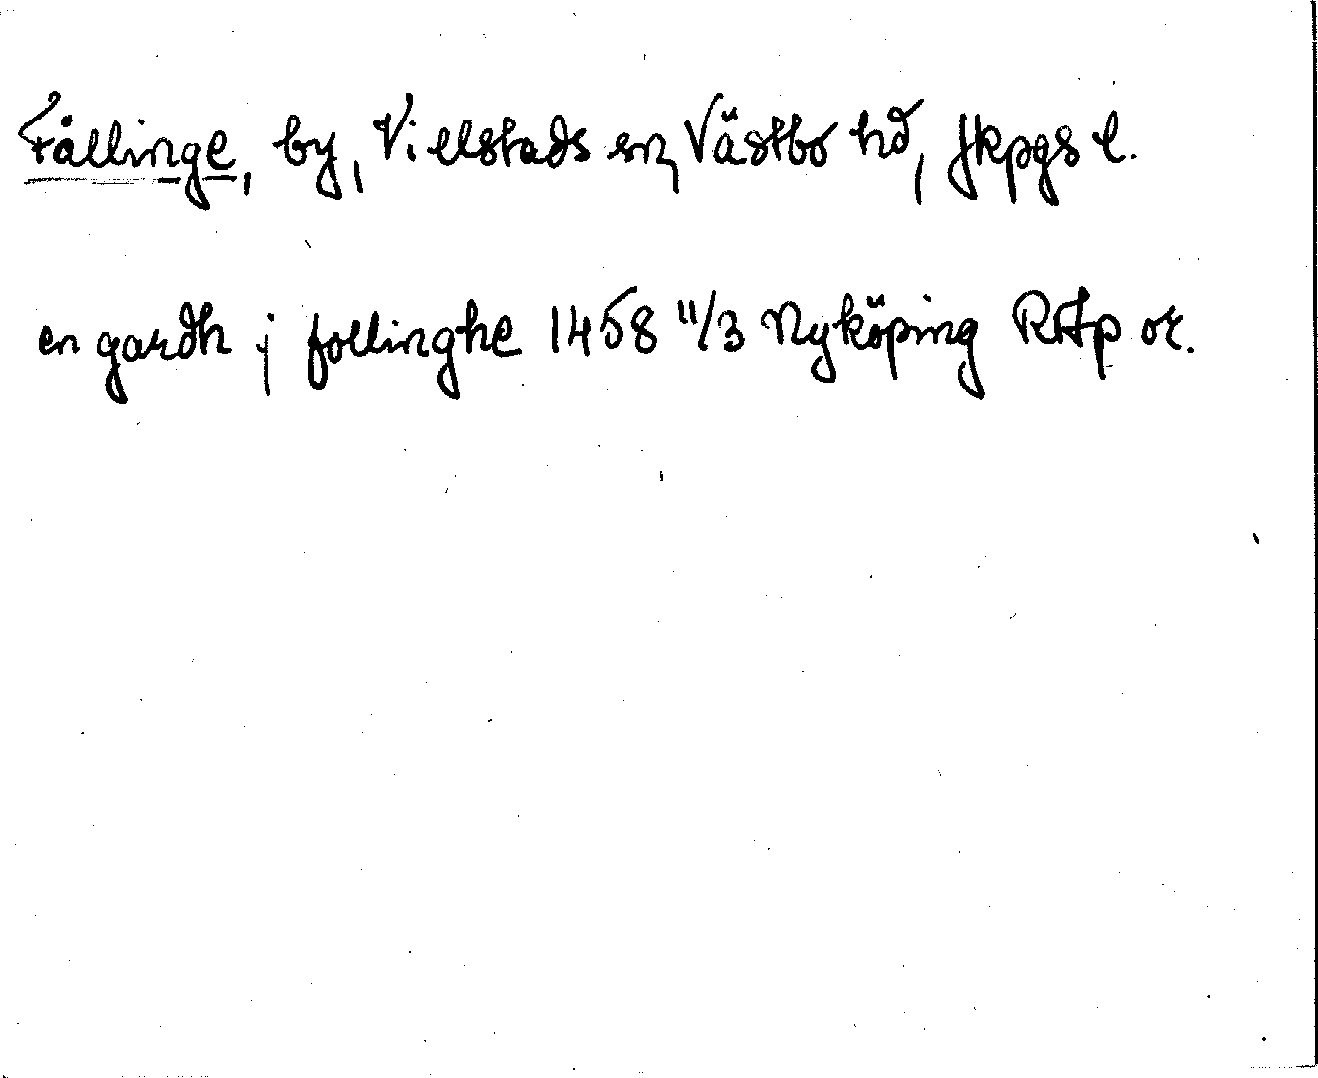 Fållinge, by, Villstads sn, Västbo hd, Jkpgs l.
en gardh j follinghe 1458 11/3 Nyköping RAp or.